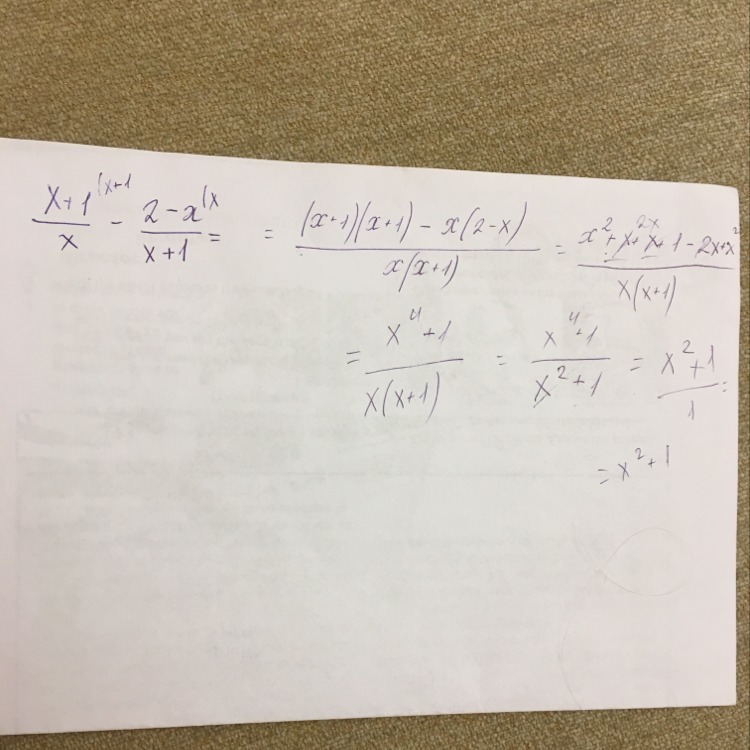 (x+1)/x ⁽ˣ⁺¹ - (2-x)/(x+1) ⁽ˣ = = ((x+1)(x+1) - x(2-x))/(x(x+1)) = (x² + x + x + 1 - 2x + x²)/(x(x+1)) 2x
= (x⁴+1)/(x(x+1)) = (x⁴+1)/(x²+1) = (x²+1)/1 =
= x²+1